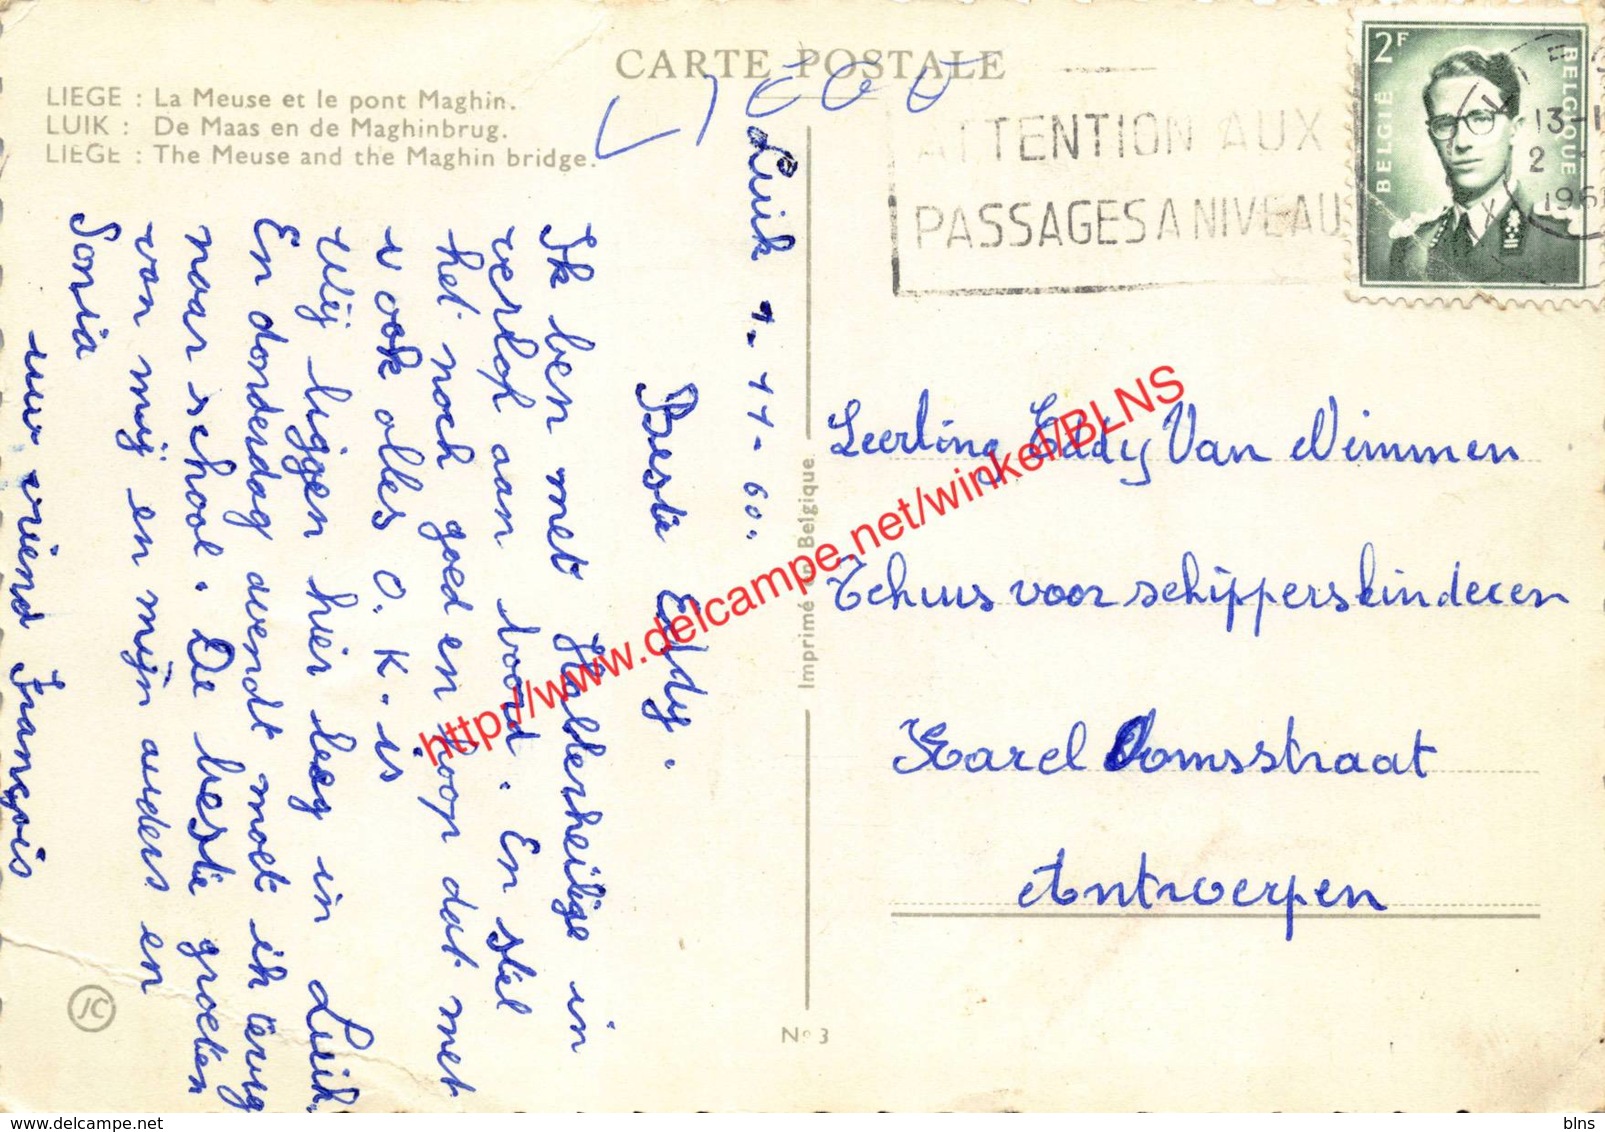 CARTE POSTALE
LIEGE : La Meuse et le pont Maghin.
LUIK : De Maas en de Maghinbrug.
LIEGE : The Meuse and the Maghin bridge.
ATTENTION AUX
PASSAGES A NIVEAU
2F
BELGIË
BELGIQUE
13-1
2
1961
Luik 1-11-60.
Beste Eddy.
Ik ben met Halderheilige in
verlof aan boord. En stel
het noch goed en hoop dat met
u ook alles O.K. is
Wij liggen hier leeg in Luik.
En donderdag avendt moet ik terug
naar school. De beste groeten
van mij en mijn auders en
Sonia
uw vriend François
Leerling Eddy Van Nimmen
Tehuis voor schipperskinderen
Karel Oomsstraat
Antwerpen
Imprimé en Belgique
Nº 3
JC
http://www.delcampe.net/winkel/BLNS
www.delcampe.net
blns